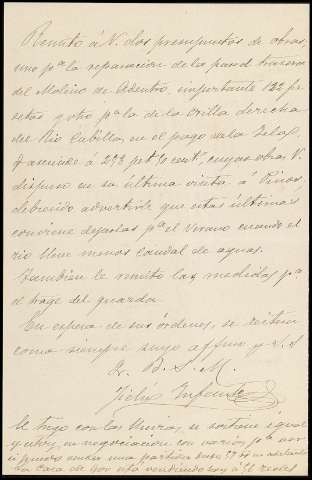 Remito á V. dos presupuestos de obras,
uno pª la reparacion de la pared trasera
del Molino de Adentro, importante 122 pe
setas y otro pª la de la orilla derecha
del Rio Cubillas, en el pago
asciende á 273 pts cents, cuyas obras V.
dispuso en su última visita á Pinos,
debiendo advertirle que estas últimas
conviene dejarlas pª el Verano cuando el
rio lleve menos caudal de aguas.
Tambien le remito las medidas pª
el traje del guarda.
En espera de sus órdenes, se reitera
como siempre suyo affmo y s. s.
Q. B. S. M.
Félix Infante
El trigo con las lluvias, se sostiene igual
y estoy en negociacion con varios pª ver
si puedo vender una partida desde 57 rs en adelante
En casa de vendiendo hoy á reales